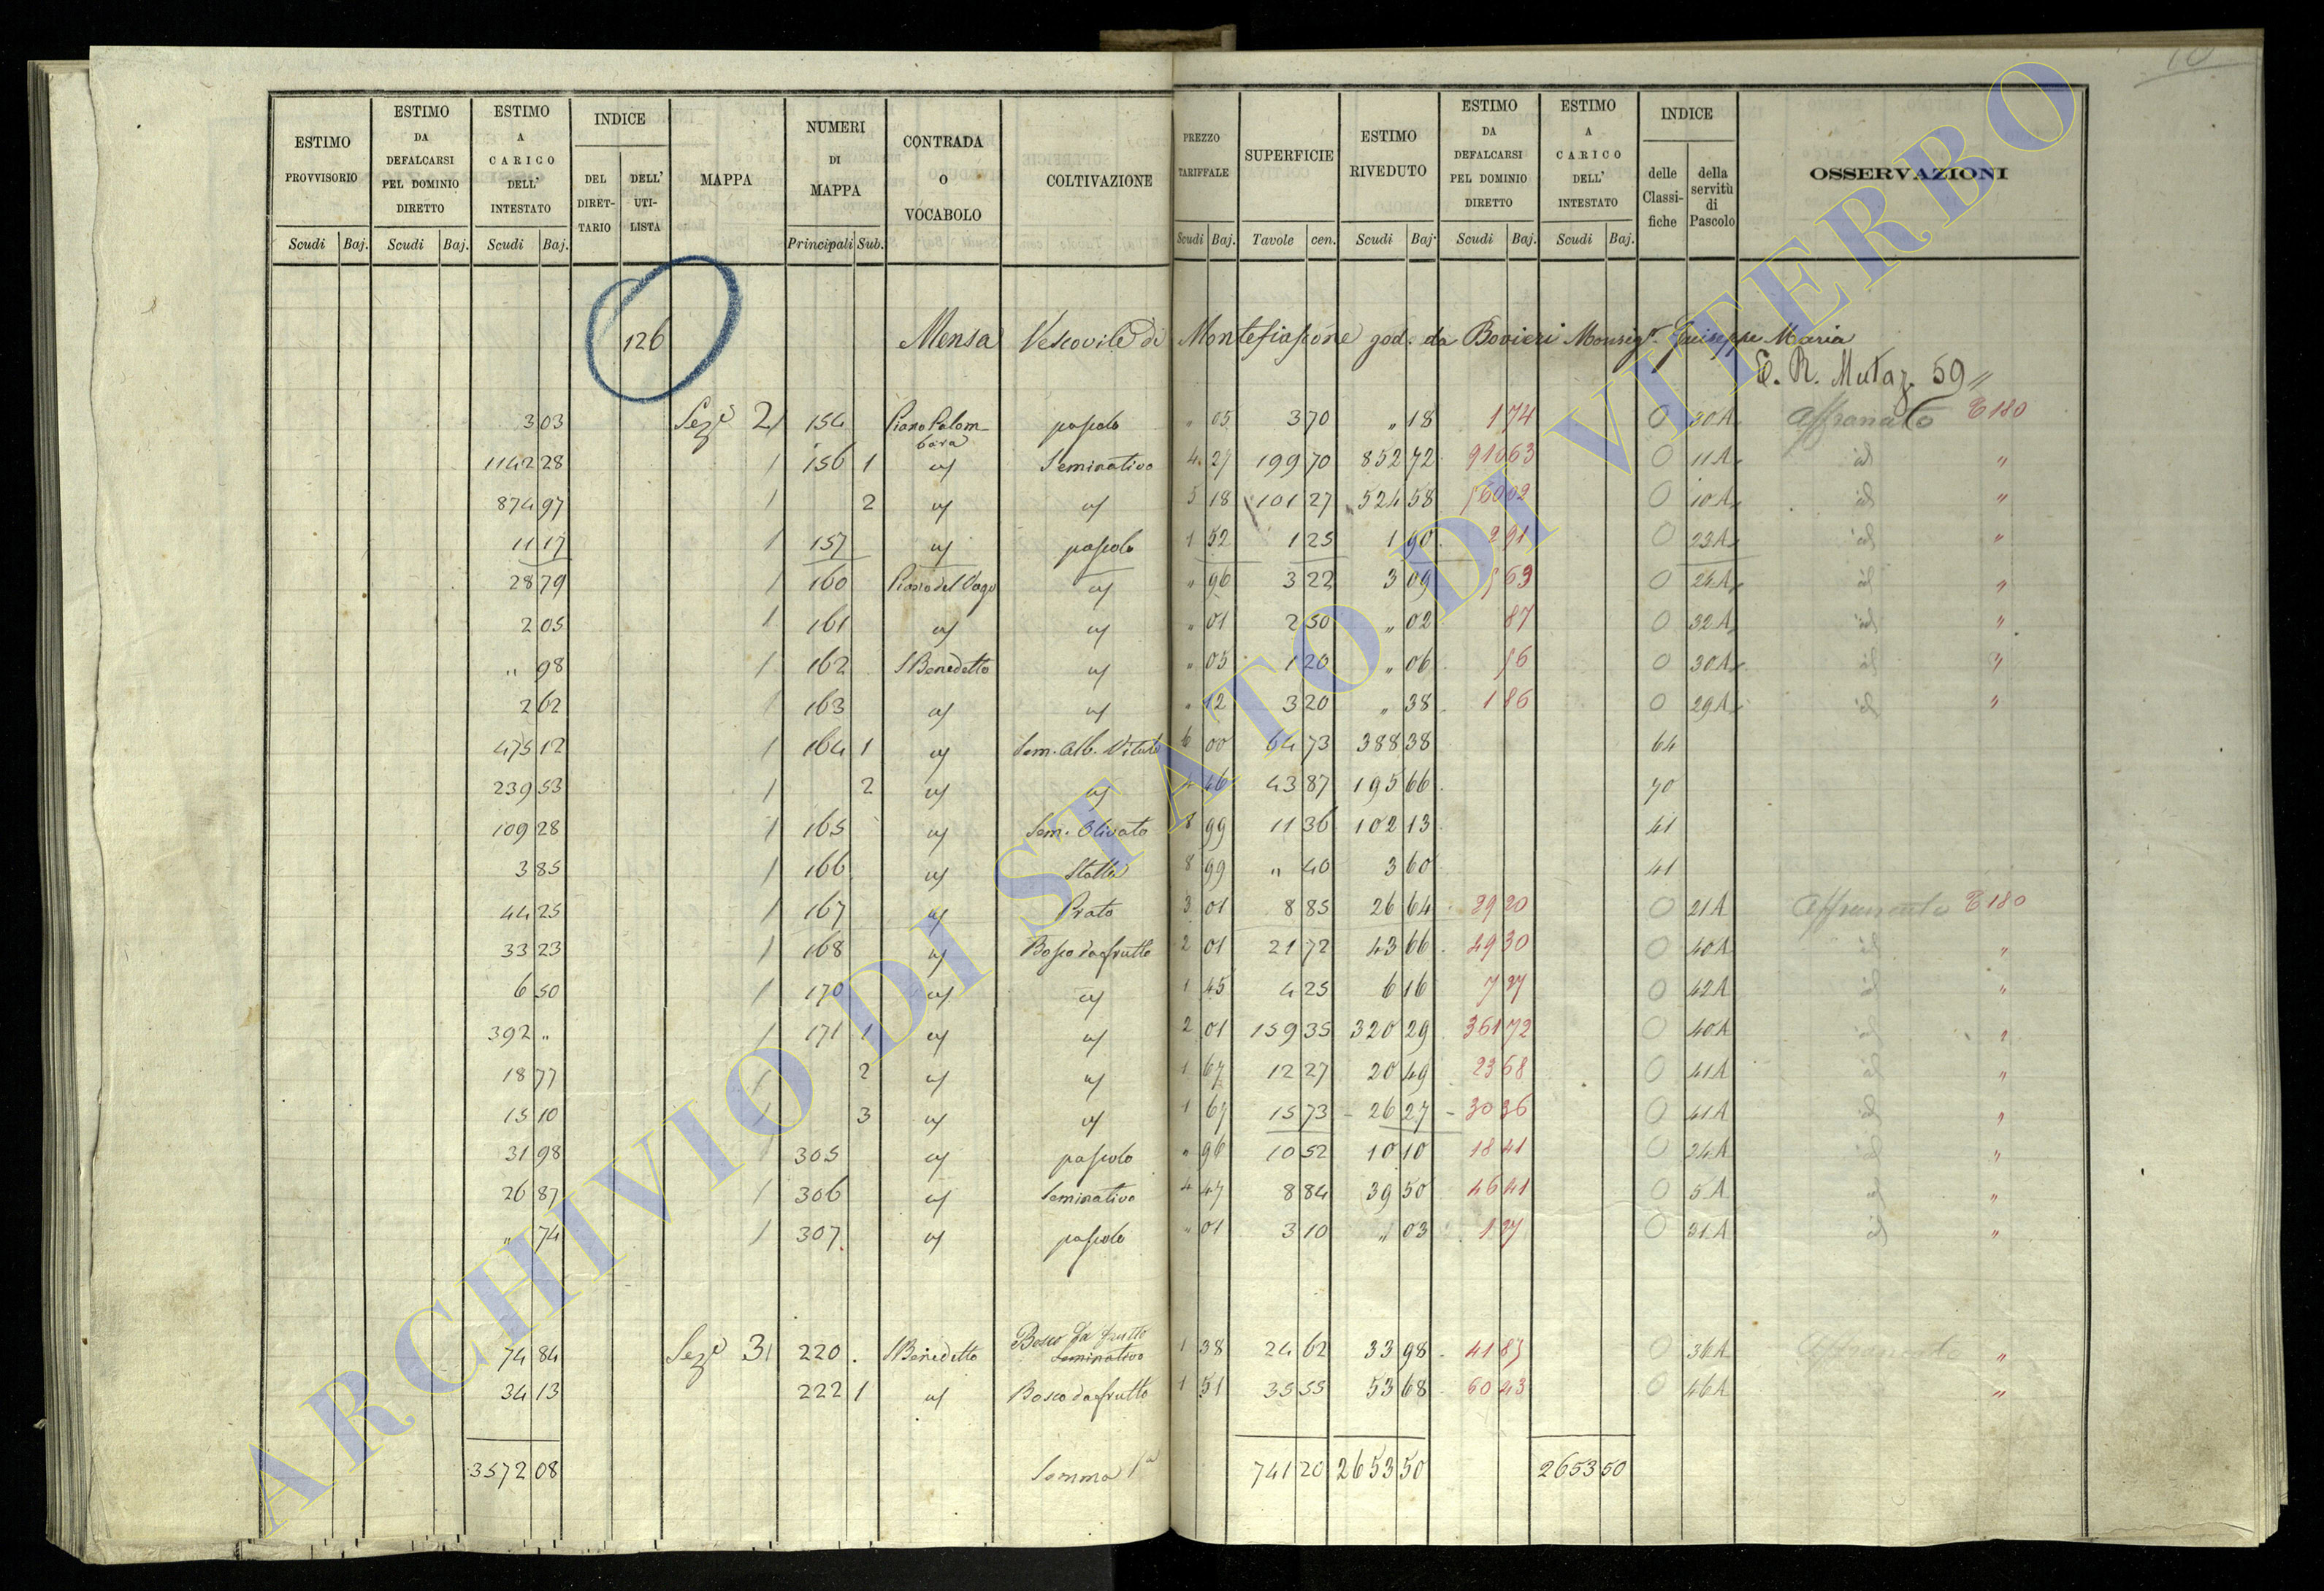 10
ESTIMO PROVVISORIO | ESTIMO DA DEFALCARSI PEL DOMINIO DIRETTO | ESTIMO A CARICO DELL' INTESTATO | INDICE | MAPPA | NUMERI DI MAPPA | CONTRADA O VOCABOLO | COLTIVAZIONE | PREZZO TARIFFALE | SUPERFICIE | ESTIMO RIVEDUTO | ESTIMO DA DEFALCARSI PEL DOMINIO DIRETTO | ESTIMO A CARICO DELL' INTESTATO | INDICE | OSSERVAZIONI
DEL DIRETTARIO | DELL' UTILISTA | delle Classifiche | della servitù di Pascolo
Scudi | Baj. | Scudi | Baj. | Scudi | Baj. | Principali | Sub. | Scudi | Baj. | Tavole | cen. | Scudi | Baj. | Scudi | Baj. | Scudi | Baj.
126 Mensa Vescovile di Montefiascone god. da Bovieri Monsigr. Giuseppe Maria
E. R. Mutaz. 59 "
3 03 Seze 2 / 154 Piano Palombara pascolo " 05 3 70 " 18 1 74 0 30A Affrancato E 180
1142 28 / 156 1 Seminativo 4 27 199 70 852 72 910 63 0 11A id "
874 97 / 2 5 18 101 27 524 58 560 02 0 10A id "
11 17 / 157 pascolo 1 52 1 25 1 90 2 91 0 23A id "
28 79 / 160 Piano del Vago " 96 3 22 3 09 5 63 0 24A id "
2 05 / 161 " 01 2 50 " 02 87 0 32A id "
" 98 / 162 S Benedetto " 05 1 20 " 06 56 0 30A id "
2 62 / 163 " 12 3 20 " 38 1 86 0 29A id "
475 12 / 164 1 Sem. Alb. Vitato 6 00 64 73 388 38 64
239 53 / 2 4 46 43 87 195 66 70
109 28 / 165 Sem. Olivato 8 99 11 36 102 13 41
3 85 / 166 Stalla 8 99 " 40 3 60 41
44 25 / 167 Prato 3 01 8 85 26 64 29 20 0 21A Affrancato E 180
33 23 / 168 Bosco da frutto 2 01 21 72 43 66 49 30 0 40A id "
6 50 / 170 1 45 4 25 6 16 7 27 0 42A id "
392 " / 171 1 2 01 159 35 320 29 361 72 0 40A id "
18 77 / 2 1 67 12 27 20 49 23 68 0 41A id "
15 10 / 3 1 67 15 73 26 27 30 36 0 41A id "
31 98 / 305 pascolo " 96 10 52 10 10 18 41 0 24A id "
26 87 / 306 Seminativo 4 47 8 84 39 50 46 41 0 5A id "
" 74 / 307 pascolo " 01 3 10 " 03 1 27 0 31A id "
74 84 Seze 3 / 220 S Benedetto Bosco da frutto Seminativo 1 38 24 62 33 98 41 85 0 36A Affrancato "
34 13 222 1 Bosco da frutto 1 51 35 55 53 68 60 43 0 46A "
3572 08 Somma 1a 741 20 2653 50 2653 50
ARCHIVIO DI STATO DI VITERBO